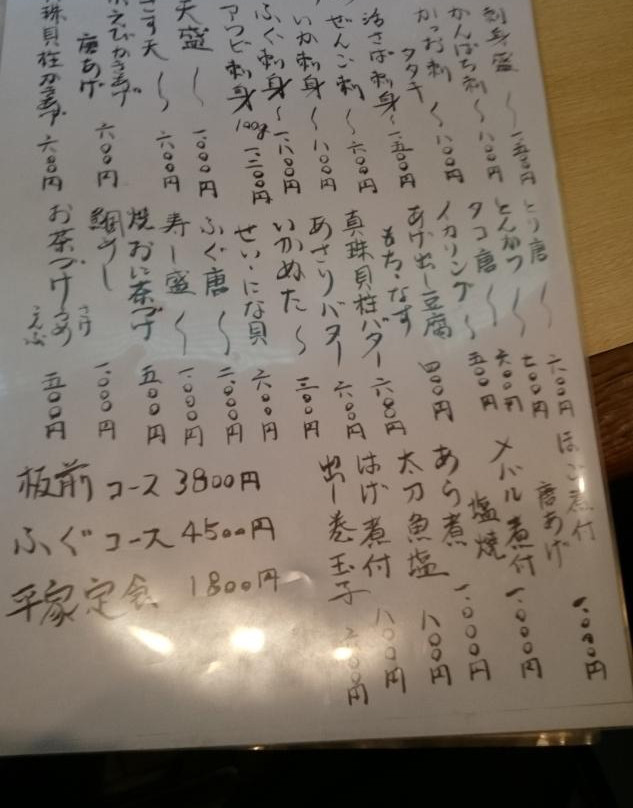 刺身盛 〜 一、五〇〇円
かんぱち刺 〜 一、八〇〇円
かつお刺 〜 一、八〇〇円
タタキ
活さば刺身 〜 一、五〇〇円
ぜんご刺 〜 六〇〇円
いか刺身 〜 八〇〇円
ふぐ刺身 〜 一、八〇〇円
アワビ刺身 100g 一、二〇〇円
天盛 〜 一、〇〇〇円
きす天 〜 六〇〇円
えびかきあげ
唐あげ 六〇〇円
真珠貝柱かきあげ 六〇〇円
とり唐 〜 六〇〇円
とんかつ 〜 七〇〇円
タコ唐 〜 六〇〇円
イカリング 〜 五〇〇円
あげ出し豆腐
もち・なす 四〇〇円
真珠貝柱バター 六〇〇円
あさりバター 六〇〇円
いかぬた 〜 三〇〇円
せい・にな貝 六〇〇円
ふぐ唐 〜 二、〇〇〇円
寿し盛 〜 一、〇〇〇円
焼おに茶づけ 五〇〇円
鯛めし 一、〇〇〇円
お茶づけ うめ さけ こんぶ 五〇〇円
ほご煮付
唐あげ 一、〇〇〇円
メバル煮付
塩焼 一、〇〇〇円
あら煮 一、〇〇〇円
太刀魚塩 八〇〇円
はげ煮付 八〇〇円
出し巻玉子
板前コース 3800円
ふぐコース 4500円
平家定食 1800円